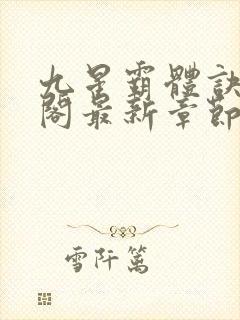 九星霸體訣
閣最新章節
雪阡篱